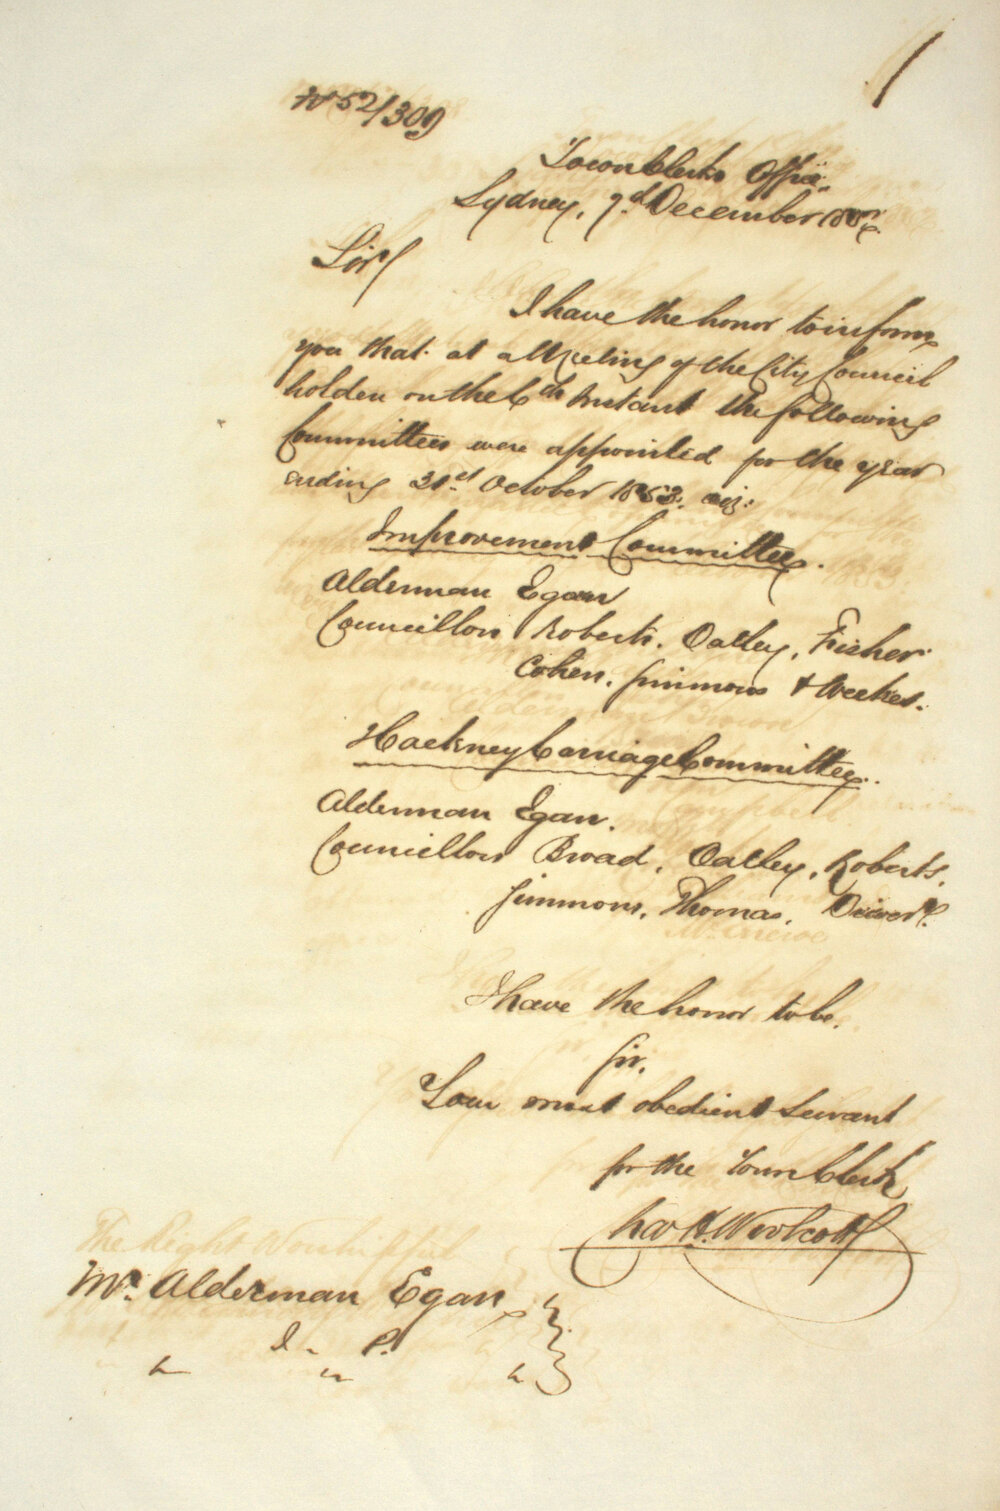 No 52/309
Town Clerks Office
Sydney, 7th December 1852
Sir/
I have the honor to inform
you that at a Meeting of the City Council
holden on the 6th Instant the following
Committees were appointed for the year
ending 31st October 1853. viz:
Improvement Committee.
Alderman Egan
Councillors Roberts. Oatley, Fisher
Cohen. Simmons & Weekes.
Hackney Carriage Committee.
Alderman Egan.
Councillors Broad, Oatley, Roberts,
Simmons, Thomas, Driver
I have the honor to be.
Sir.
Your most obedient Servant
for the Town Clerk
Chas H. Woolcott
Mr. Alderman Egan
J. P.